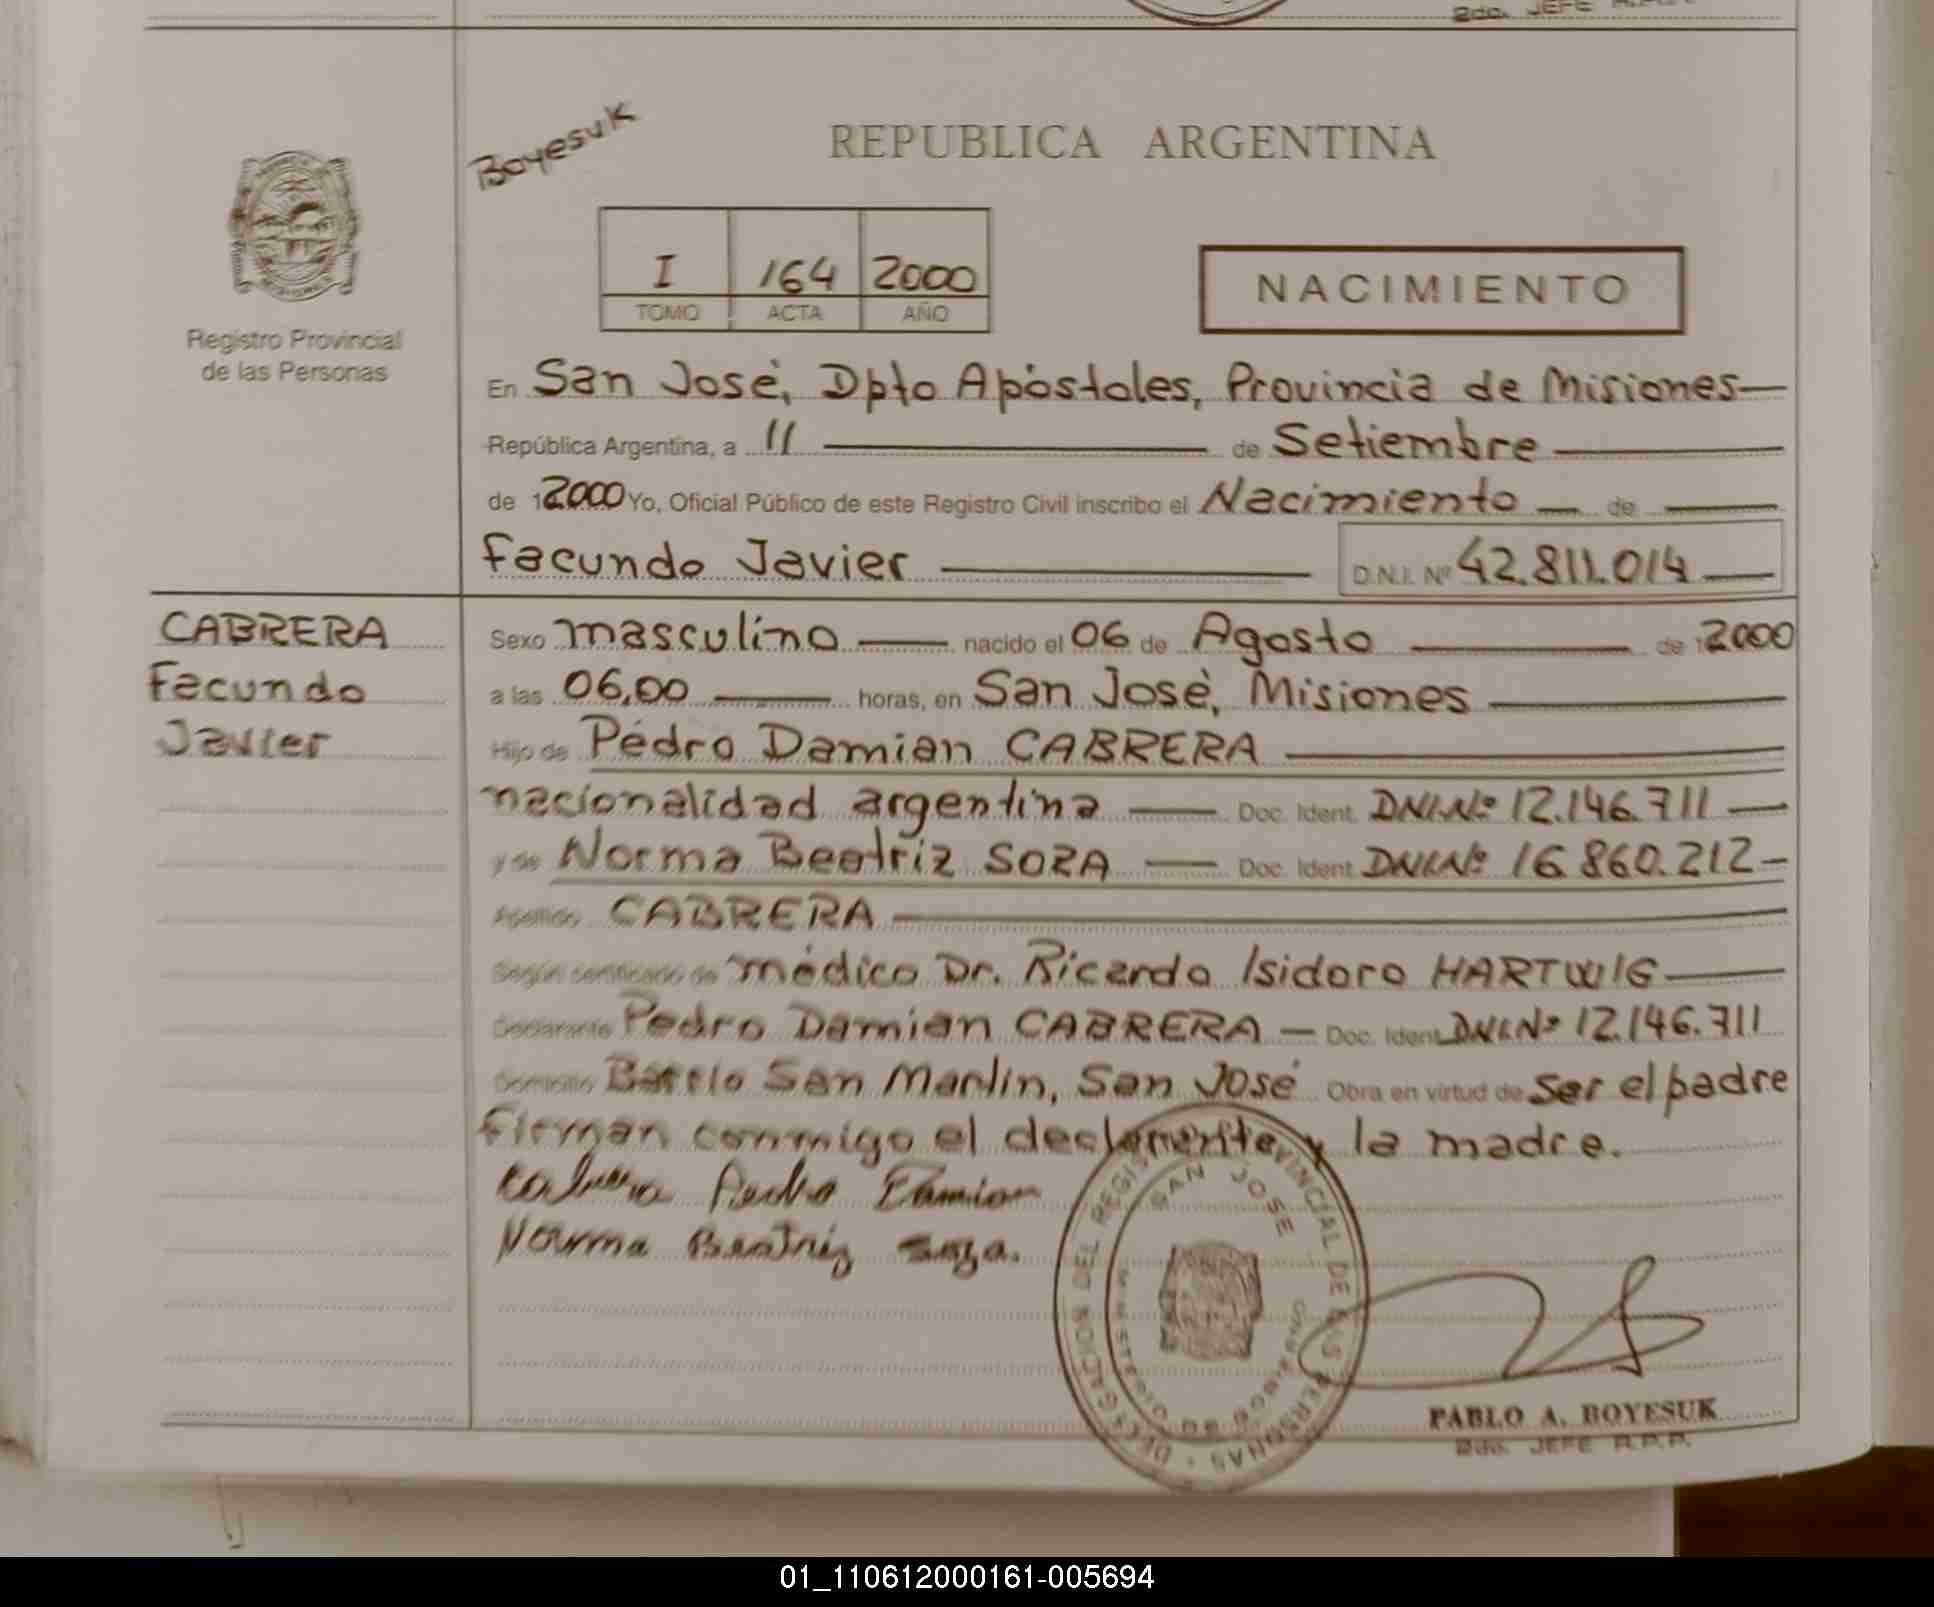 2do. JEFE R.P.P.
Boyesuk
REPUBLICA ARGENTINA
I 164 2000
TOMO ACTA AÑO
NACIMIENTO
Registro Provincial
de las Personas
En San José, Dpto Apóstoles, Provincia de Misiones—
República Argentina, a 11 — de Setiembre —
de 12000 Yo, Oficial Público de este Registro Civil inscribo el Nacimiento — de —
Facundo Javier — D.N.I. Nº 42.811.014 —
CABRERA
Facundo
Javier
Sexo masculino — nacido el 06 de Agosto — de 12000
a las 06,00 — horas, en San José, Misiones —
Hijo de Pedro Damian CABRERA —
nacionalidad argentina — Doc. Ident. DNI.Nº 12.146.711 —
y de Norma Beatriz SOZA — Doc. Ident. DNI.Nº 16.860.212 —
Apellido CABRERA —
Según certificado de médico Dr. Ricardo Isidoro HARTWIG —
Declarante Pedro Damian CABRERA — Doc. Ident. DNI.Nº 12.146.711
Domicilio Barrio San Martin, San José Obra en virtud de Ser el padre
Firman conmigo el declarante y la madre.
Cabrera Pedro Damian
Norma Beatriz Soza.
DELEGACION DEL REGISTRO PROVINCIAL DE LAS PERSONAS
SAN JOSE
PABLO A. BOYESUK
2do. JEFE R.P.P.
01_110612000161-005694